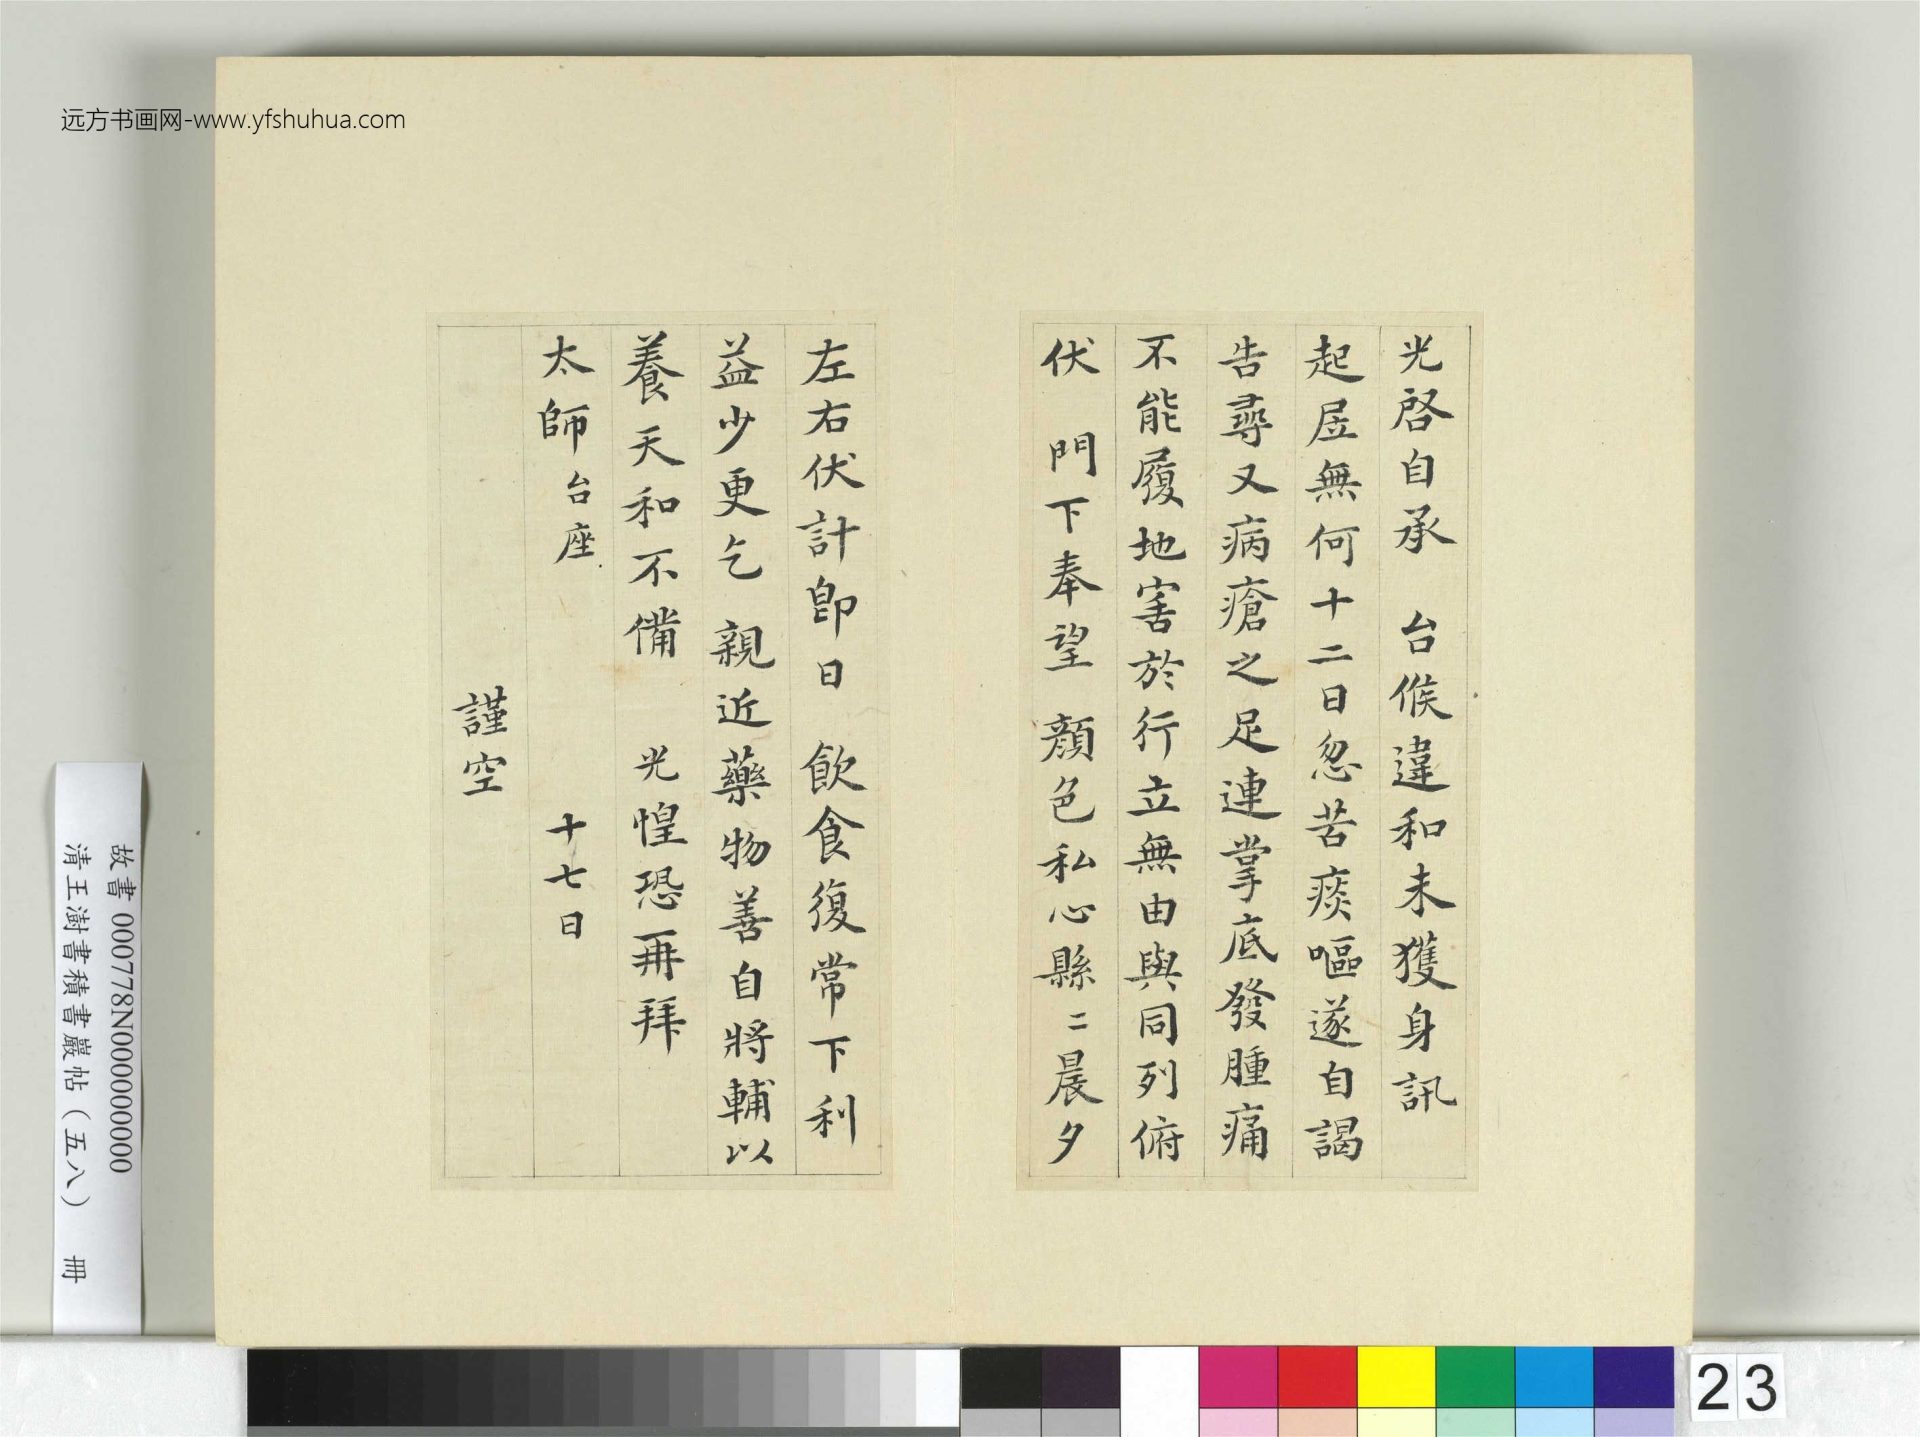 远方书画网-www.yfshuhua.com
光啓自承 台候違和未獲身訊
起居無何十二日忽苦痰嘔遂自謁
告尋又病瘡之足連掌底發腫痛
不能履地害於行立無由與同列俯
伏 門下奉望 顏色私心縣二晨夕
左右伏計即日 飲食復常下利
益少更乞 親近藥物善自將輔以
養天和不備 光惶恐再拜
太師台座 十七日
謹空
故書 000778N000000000
清王澍書積書巖帖（五八） 冊
23